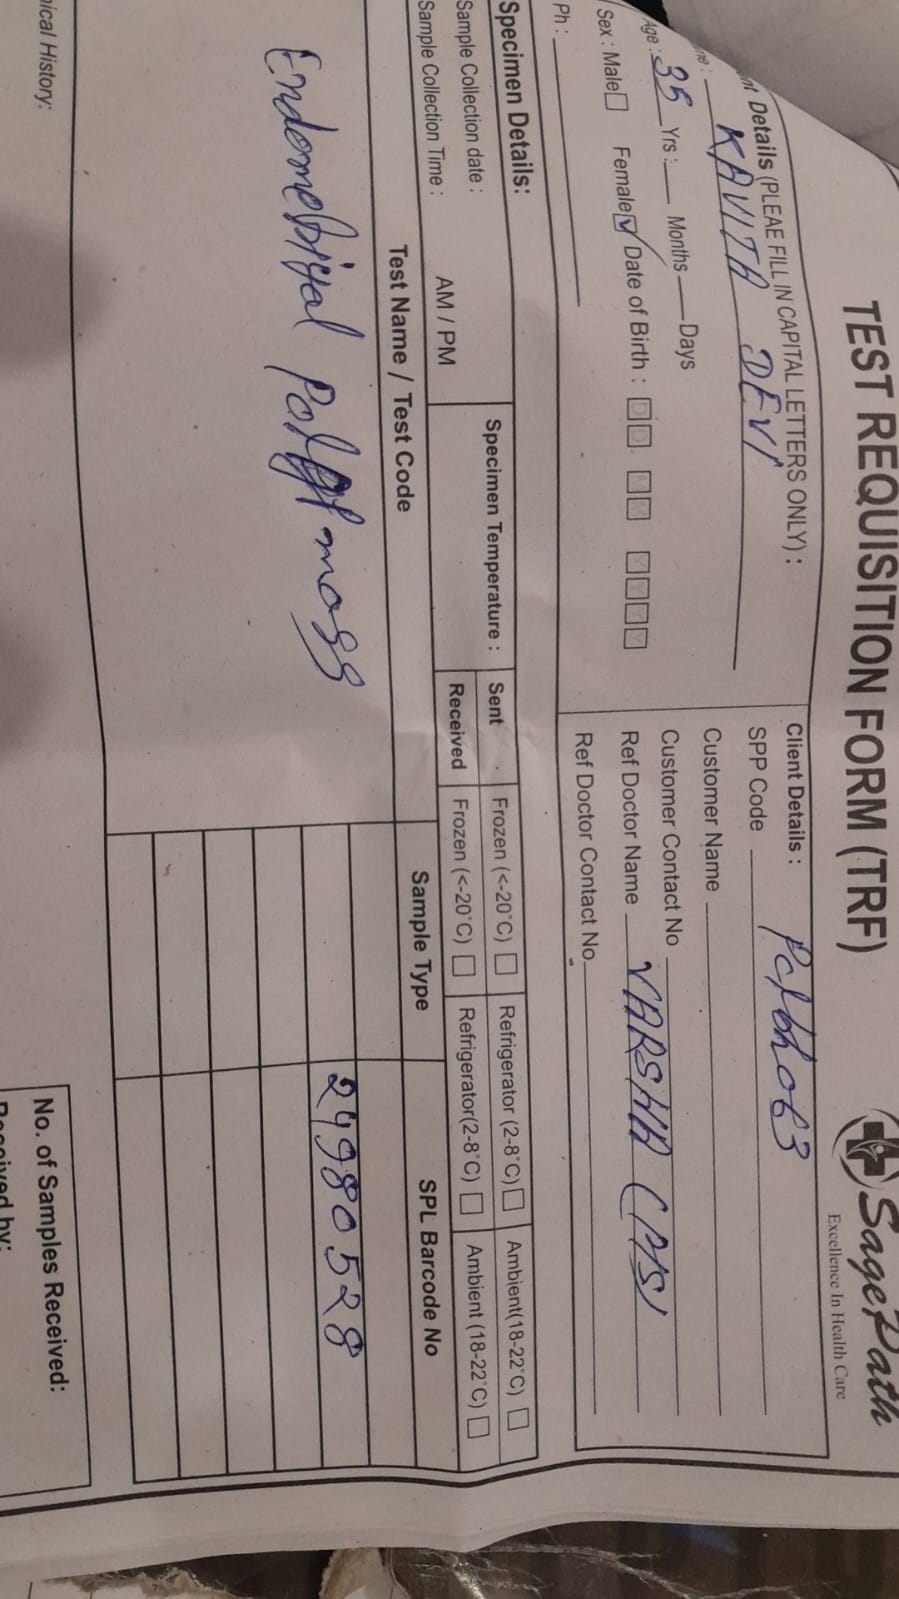 TEST REQUISITION FORM (TRF)
SagePath
Excellence In Health Care
nt Details (PLEAE FILL IN CAPITAL LETTERS ONLY) :
me : KAVITA DEVI
Age : 35 Yrs : Months Days
Sex : Male Female ✓ Date of Birth : D D M M Y Y Y Y
Ph :
Client Details :
SPP Code
Customer Name
Customer Contact No
Ref Doctor Name VARSHA
Ref Doctor Contact No
Specimen Details:
Sample Collection date :
Sample Collection Time : AM / PM
Specimen Temperature :
Sent Frozen (<-20°C) Refrigerator (2-8°C) Ambient(18-22°C)
Received Frozen (<-20°C) Refrigerator(2-8°C) Ambient (18-22°C)
Test Name / Test Code Sample Type SPL Barcode No
24980528
mass
ical History:
No. of Samples Received:
Received by: